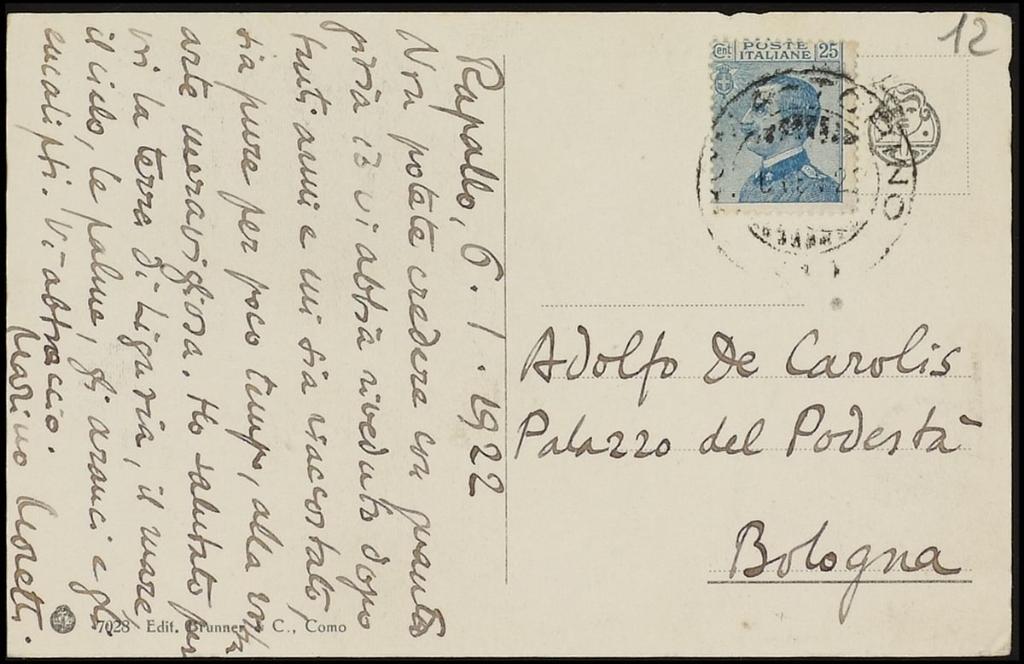 Rapallo, 6. 1. 1922
Non potete credere con quanta
gioia io vi abbia riveduto dopo
tanti anni e mi sia riaccostato,
sia pure per poco tempo, alla vostra
arte meravigliosa. Ho salutato per
voi la terra di Liguria, il mare,
il cielo, le palme, gli aranci e gli
eucalipti. Vi abbraccio.
Marino Moretti.
7028 Edit. Brunner & C., Como
12
Cent POSTE ITALIANE 25
Adolfo De Carolis
Palazzo del Podestà
Bologna